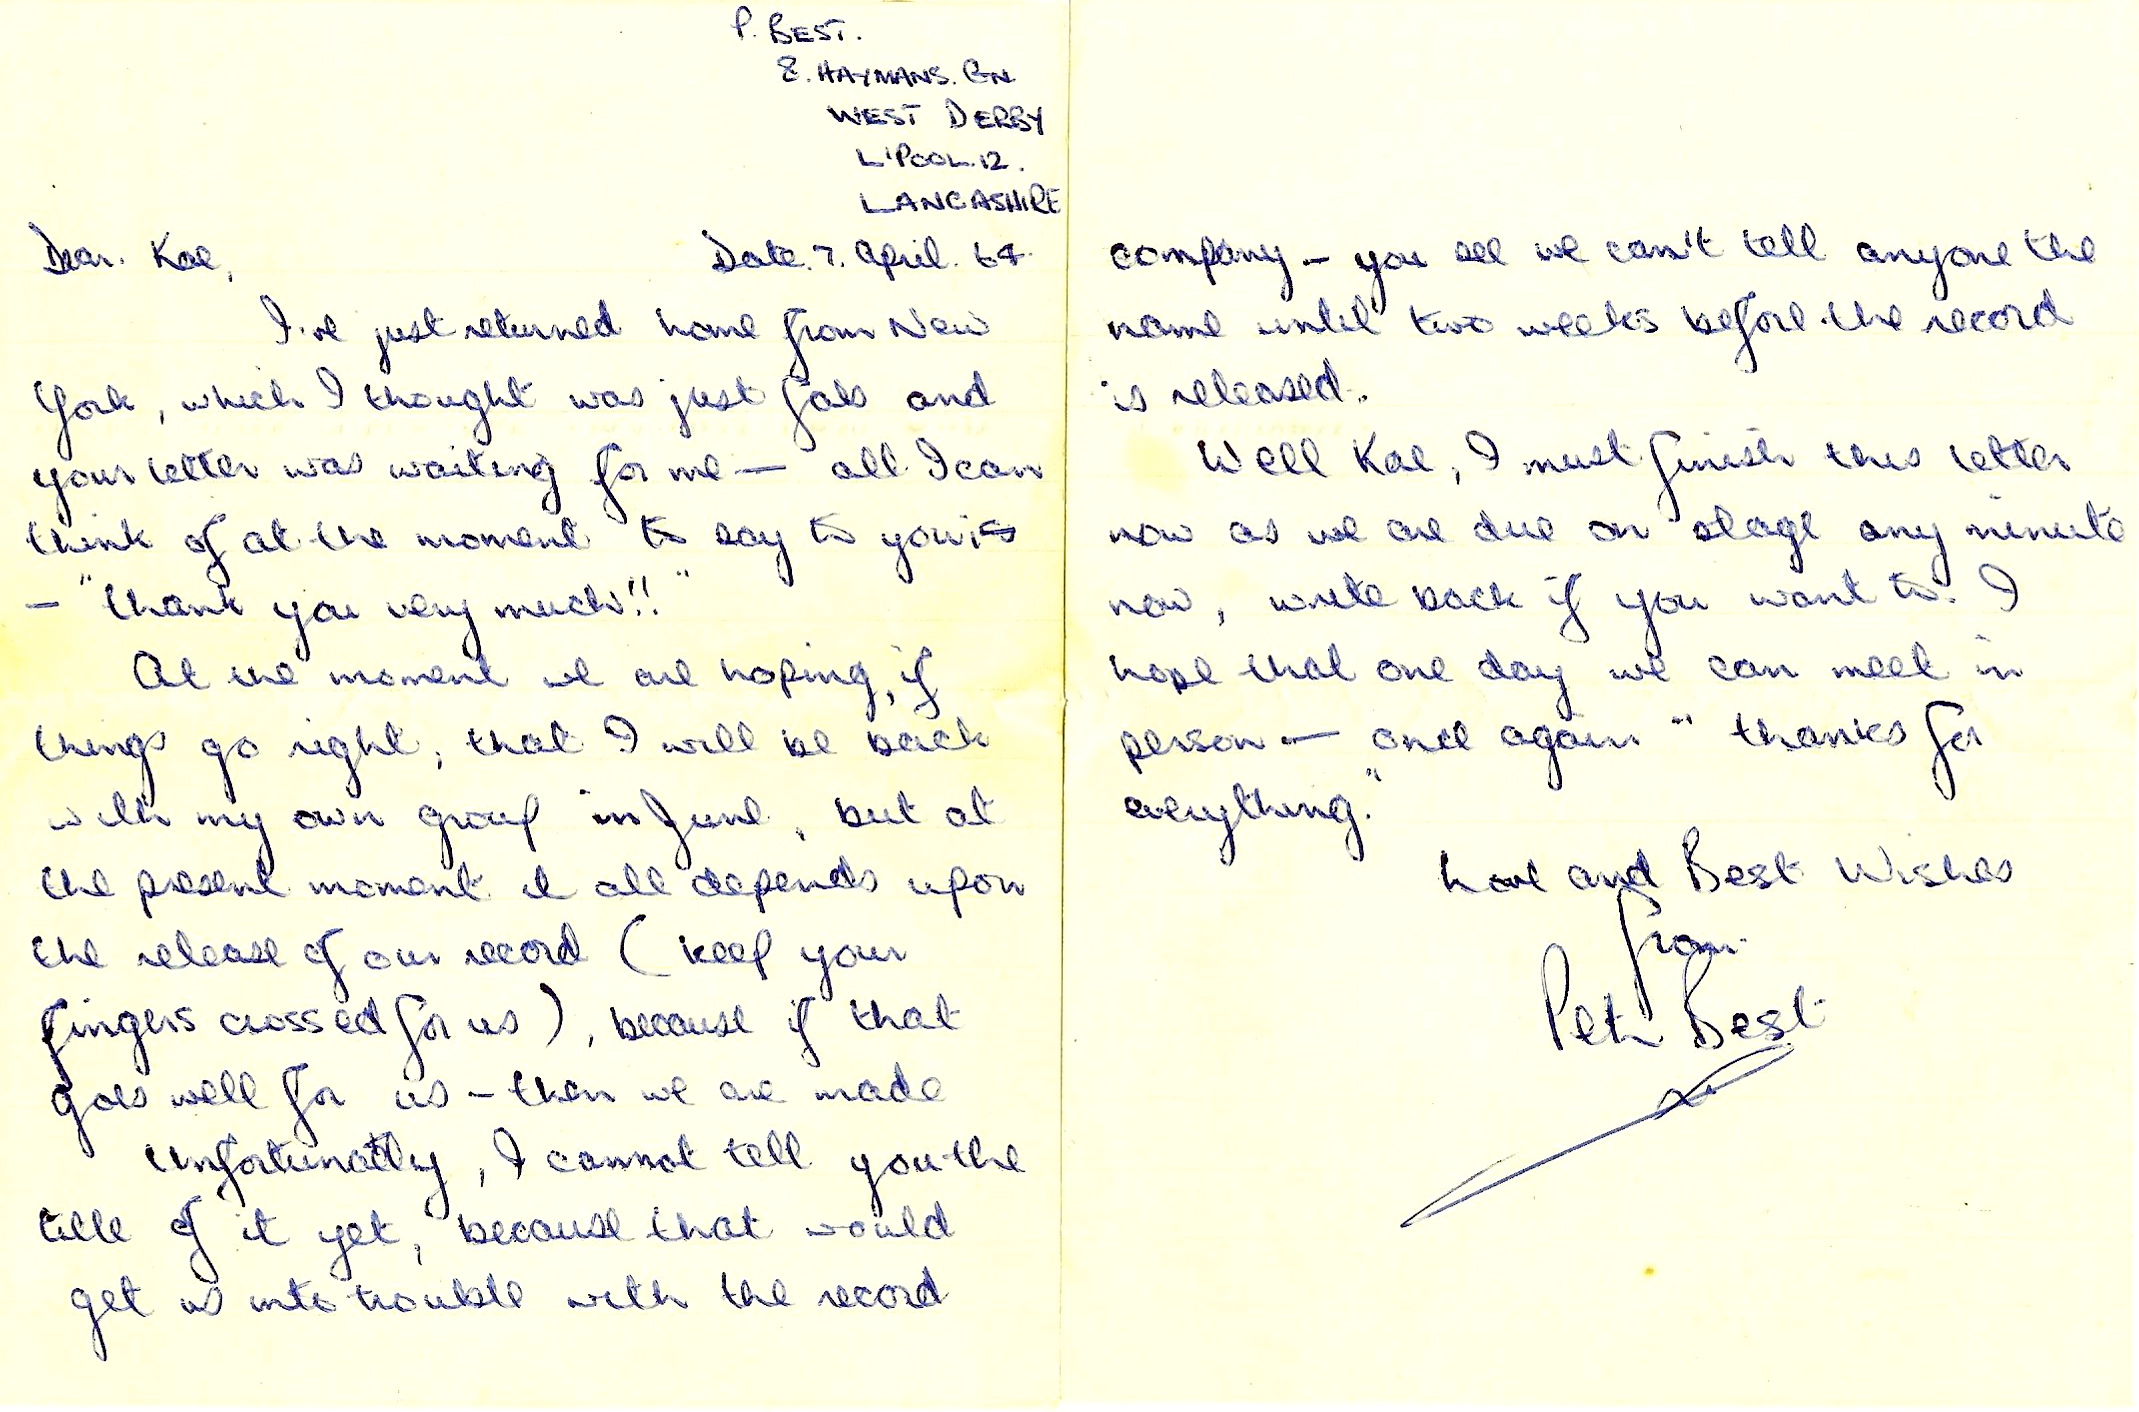 P. BEST.
8. HAYMANS. GN
WEST DERBY
L'POOL. 12.
LANCASHIRE
Dear. Kae, Date. 7. April. 64.
I've just returned home from New
York, which I thought was just fab and
your letter was waiting for me — all I can
think of at the moment to say to you is
— "thank you very much!!"
At the moment we are hoping, if
things go right, that I will be back
with my own group in June, but at
the present moment it all depends upon
the release of our record (keep your
fingers crossed for us), because if that
goes well for us – then we are made
Unfortunatly, I cannot tell you the
title of it yet, because that would
get us into trouble with the record
company – you see we can't tell anyone the
name until two weeks before the record
is released.
Well Kae, I must finish this letter
now as we are due on stage any minute
now, write back if you want to. I
hope that one day we can meet in
person — once again "thanks for
everything."
Love and Best Wishes
from
Pete Best